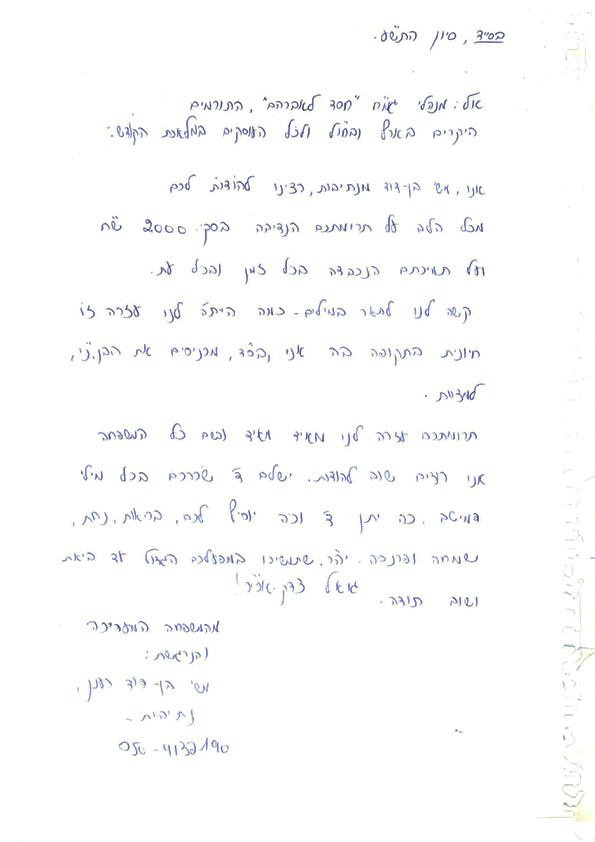 בס״ד, סיון התשע.
אל: מנהלי גמ״ח "חסד לאברהם", התורמים
היקרים בארץ ובחו״ל ולכל העוסקים במלאכת הקודש:
אנו, מש' בן-דוד מנתיבות, רצינו להודות לכם
מכל הלב על תרומתכם הנדיבה בסך: 2000 ש״ח
ועל תמיכתם הנכבדה בכל זמן ובכל עת.
קשה לנו לתאר במילים - כמה הייתה לנו עזרה זו
חיונית בתקופה בה אנו, בס״ד, מכניסים את הבן,
למצוות.
תרומתכם עזרה לנו מאוד מאוד ובשם כל המשפחה
אנו רוצים שוב להודות. ישלם ה' שכרכם בכל מילי
דמיטב. כה יתן ה' וכה יוסיף לכם, בריאות, נחת,
שמחה ופרנסה. יה״ר, שתמשיכו במפעלכם הגדול עד ביאת
גואל צדק. אכי״ר!
ושוב תודה.
מהמשפחה המעריכה
והנרגשת:
מש' בן-דוד רענן,
נתיבות -
050-4137190